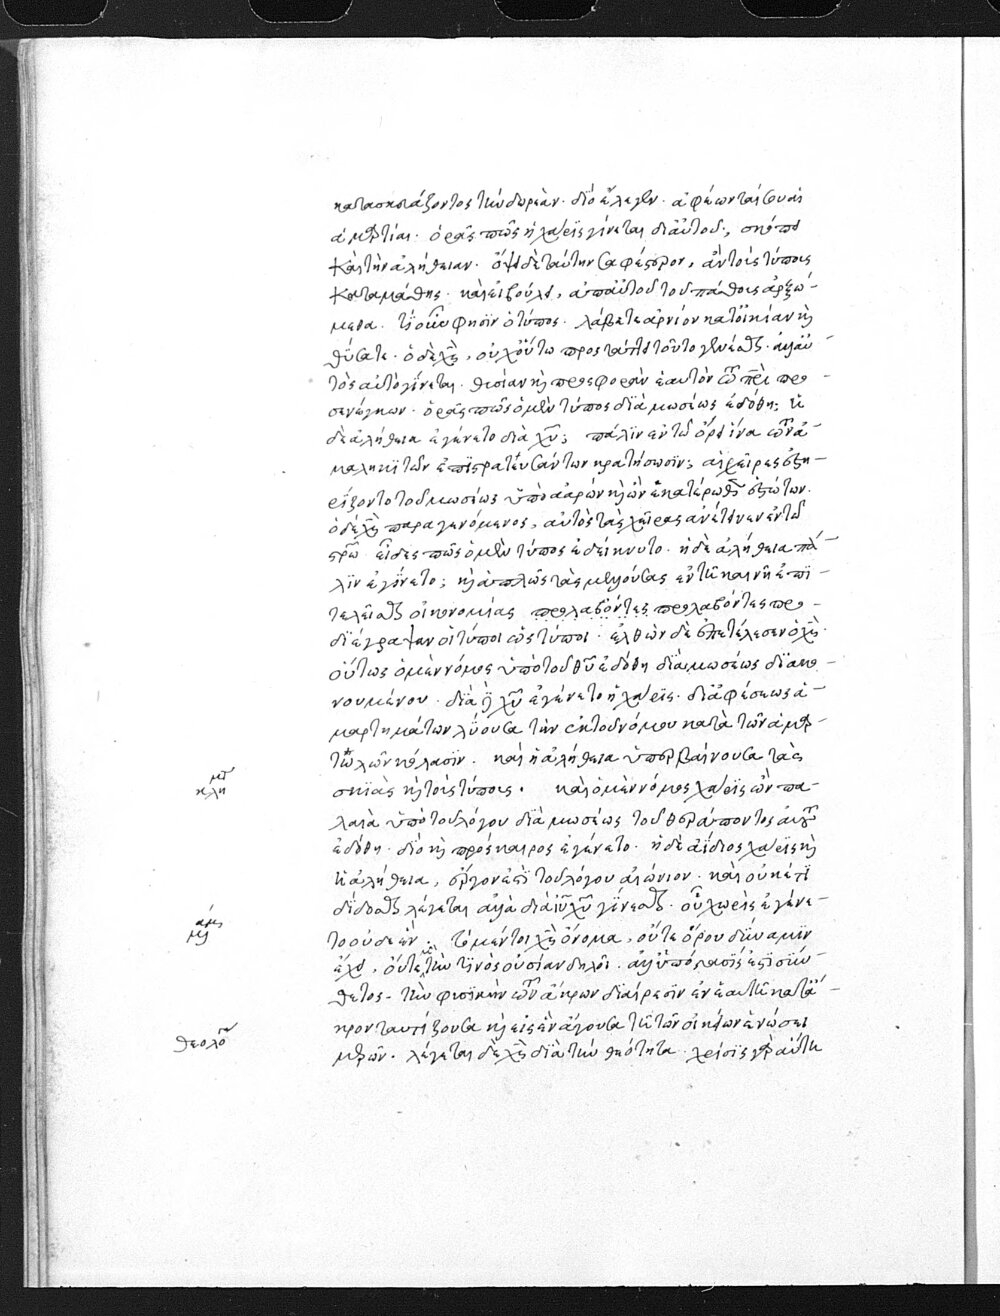 κατασκευάζοντος τὴν δωρεάν. διὸ ἔλεγεν. ἀφέωνταί σου αἱ
ἁμαρτίαι. ὁρᾷς πῶς ἡ χάρις γίνεται δι' αὐτοῦ,
καὶ τὴν ἀλήθειαν. ὄψει δὲ ταύτην σαφέστερον, ἂν τοὺς τύπους
καταμάθῃς. καὶ εἰ βούλει, ἀπ' αὐτοῦ τοῦ πάθους ἀρξώ-
μεθα. τί οὖν φησὶν ὁ τύπος. λάβετε ἀρνίον κατ' οἰκίαν καὶ
θύσατε. ὁ δὲ χς, οὐχ οὕτω προστάττει τοῦτο γενέσθαι. ἀλλ' αὐ-
τὸς αὐτὸ γίνεται. θυσίαν καὶ προσφορὰν ἑαυτὸν τῷ πρὶ προ-
σενέγκων. ὁρᾷς πῶς ὁ μὲν τύπος διὰ μωσέως ἐδόθη; ἡ
δὲ ἀλήθεια ἐγένετο διὰ χυ; πάλιν ἐν τῷ ὄρει ἵνα τῶν ἀ-
μαληκιτῶν ἐπιστρατευσάντων κρατήσωσιν; αἱ χεῖρες ἐστη-
ρίζοντο τοῦ μωσέως ὑπὸ ἀαρὼν καὶ ὢρ ἑκατέρωθεν ἑστώτων.
ὁ δὲ χς παραγενόμενος, αὐτὸς τὰς χεῖρας ἀνέτεινεν ἐν τῷ
στρῷ. εἶδες πῶς ὁ μὲν τύπος ἐδείκνυτο. ἡ δὲ ἀλήθεια πά-
λιν ἐγένετο; καὶ ἁπλῶς τὰς μελλούσας ἐν τῇ καινῇ ἐπι-
τελεῖσθαι οἰκονομίας προλαβόντες προλαβόντες προ-
διέγραψαν οἱ τύποι ὡς τύποι. ἐλθὼν δὲ ἐπετέλεσεν ὁ χς.
οὕτως ὁ μὲν νόμος ὑπὸ τοῦ θυ ἐδόθη διὰ μωσέως διακο-
νουμένου. διὰ ιυ χυ ἐγένετο ἡ χάρις. δι' ἀφέσεως ἁ-
μαρτημάτων λύουσα τὴν ἐκ τοῦ νόμου κατὰ τῶν ἁμαρ-
τωλῶν κόλασιν. καὶ ἡ ἀλήθεια ὑπερβαίνουσα τὰς
σκιὰς καὶ τοὺς τύπους. καὶ ὁ μὲν νόμος χάρις ὢν πα-
λαιὰ ὑπὸ τοῦ λόγου διὰ μωσέως τοῦ θεράποντος αὐτοῦ
ἐδόθη. διὸ καὶ πρόσκαιρος ἐγένετο. ἡ δὲ ἀΐδιος χάρις καὶ
ἡ ἀλήθεια, ἔργον ἐστὶ τοῦ λόγου αἰώνιον. καὶ οὐκέτι
δίδοσθαι λέγεται ἀλλὰ διὰ ιυ χυ γίνεσθαι. οὗ χωρὶς ἐγένε-
το οὐδὲ ἕν. τὸ μέντοι χς ὄνομα, οὔτε ὅρου δύναμιν
ἔχει, οὔτε τὴν τινὸς οὐσίαν δηλοῖ. ἀλλ' ὑπόστασίς ἐστι σύν-
θετος. τὴν φυσικὴν τῶν ἄκρων διαίρεσιν ἐν ἑαυτῇ κατ' ἄ-
κρον ταυτίζουσα καὶ εἰς ἓν ἄγουσα τῇ τῶν οἰκείων ἑνώσει
μερῶν. λέγεται δὲ χς διὰ τὴν θεότητα. χρίσις γὰρ αὕτη
κλη
θεολο